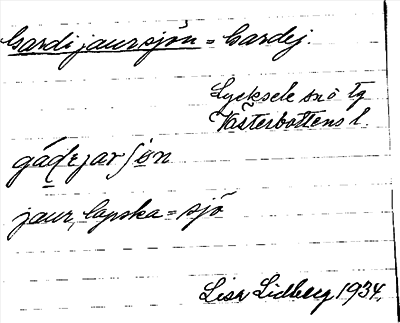 Gardijaursjön = Gardej.
Lycksele snö tg
Västerbottens l.
gádejarjøn
jaur, lapska = sjö
Lisa Lidberg 1934.